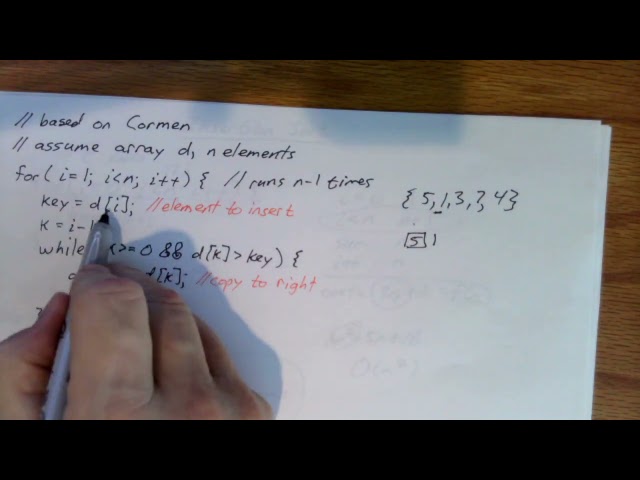 // based on Cormen
// assume array d, n elements
for( i=1; i<n; i++) { // runs n-1 times
key = d[i]; //element to insert
{ 5, 1, 3, 7, 4}
k = i-1
5 1
while >=0 && d[k] > key) {
d[k]; //copy to right
O(n²)